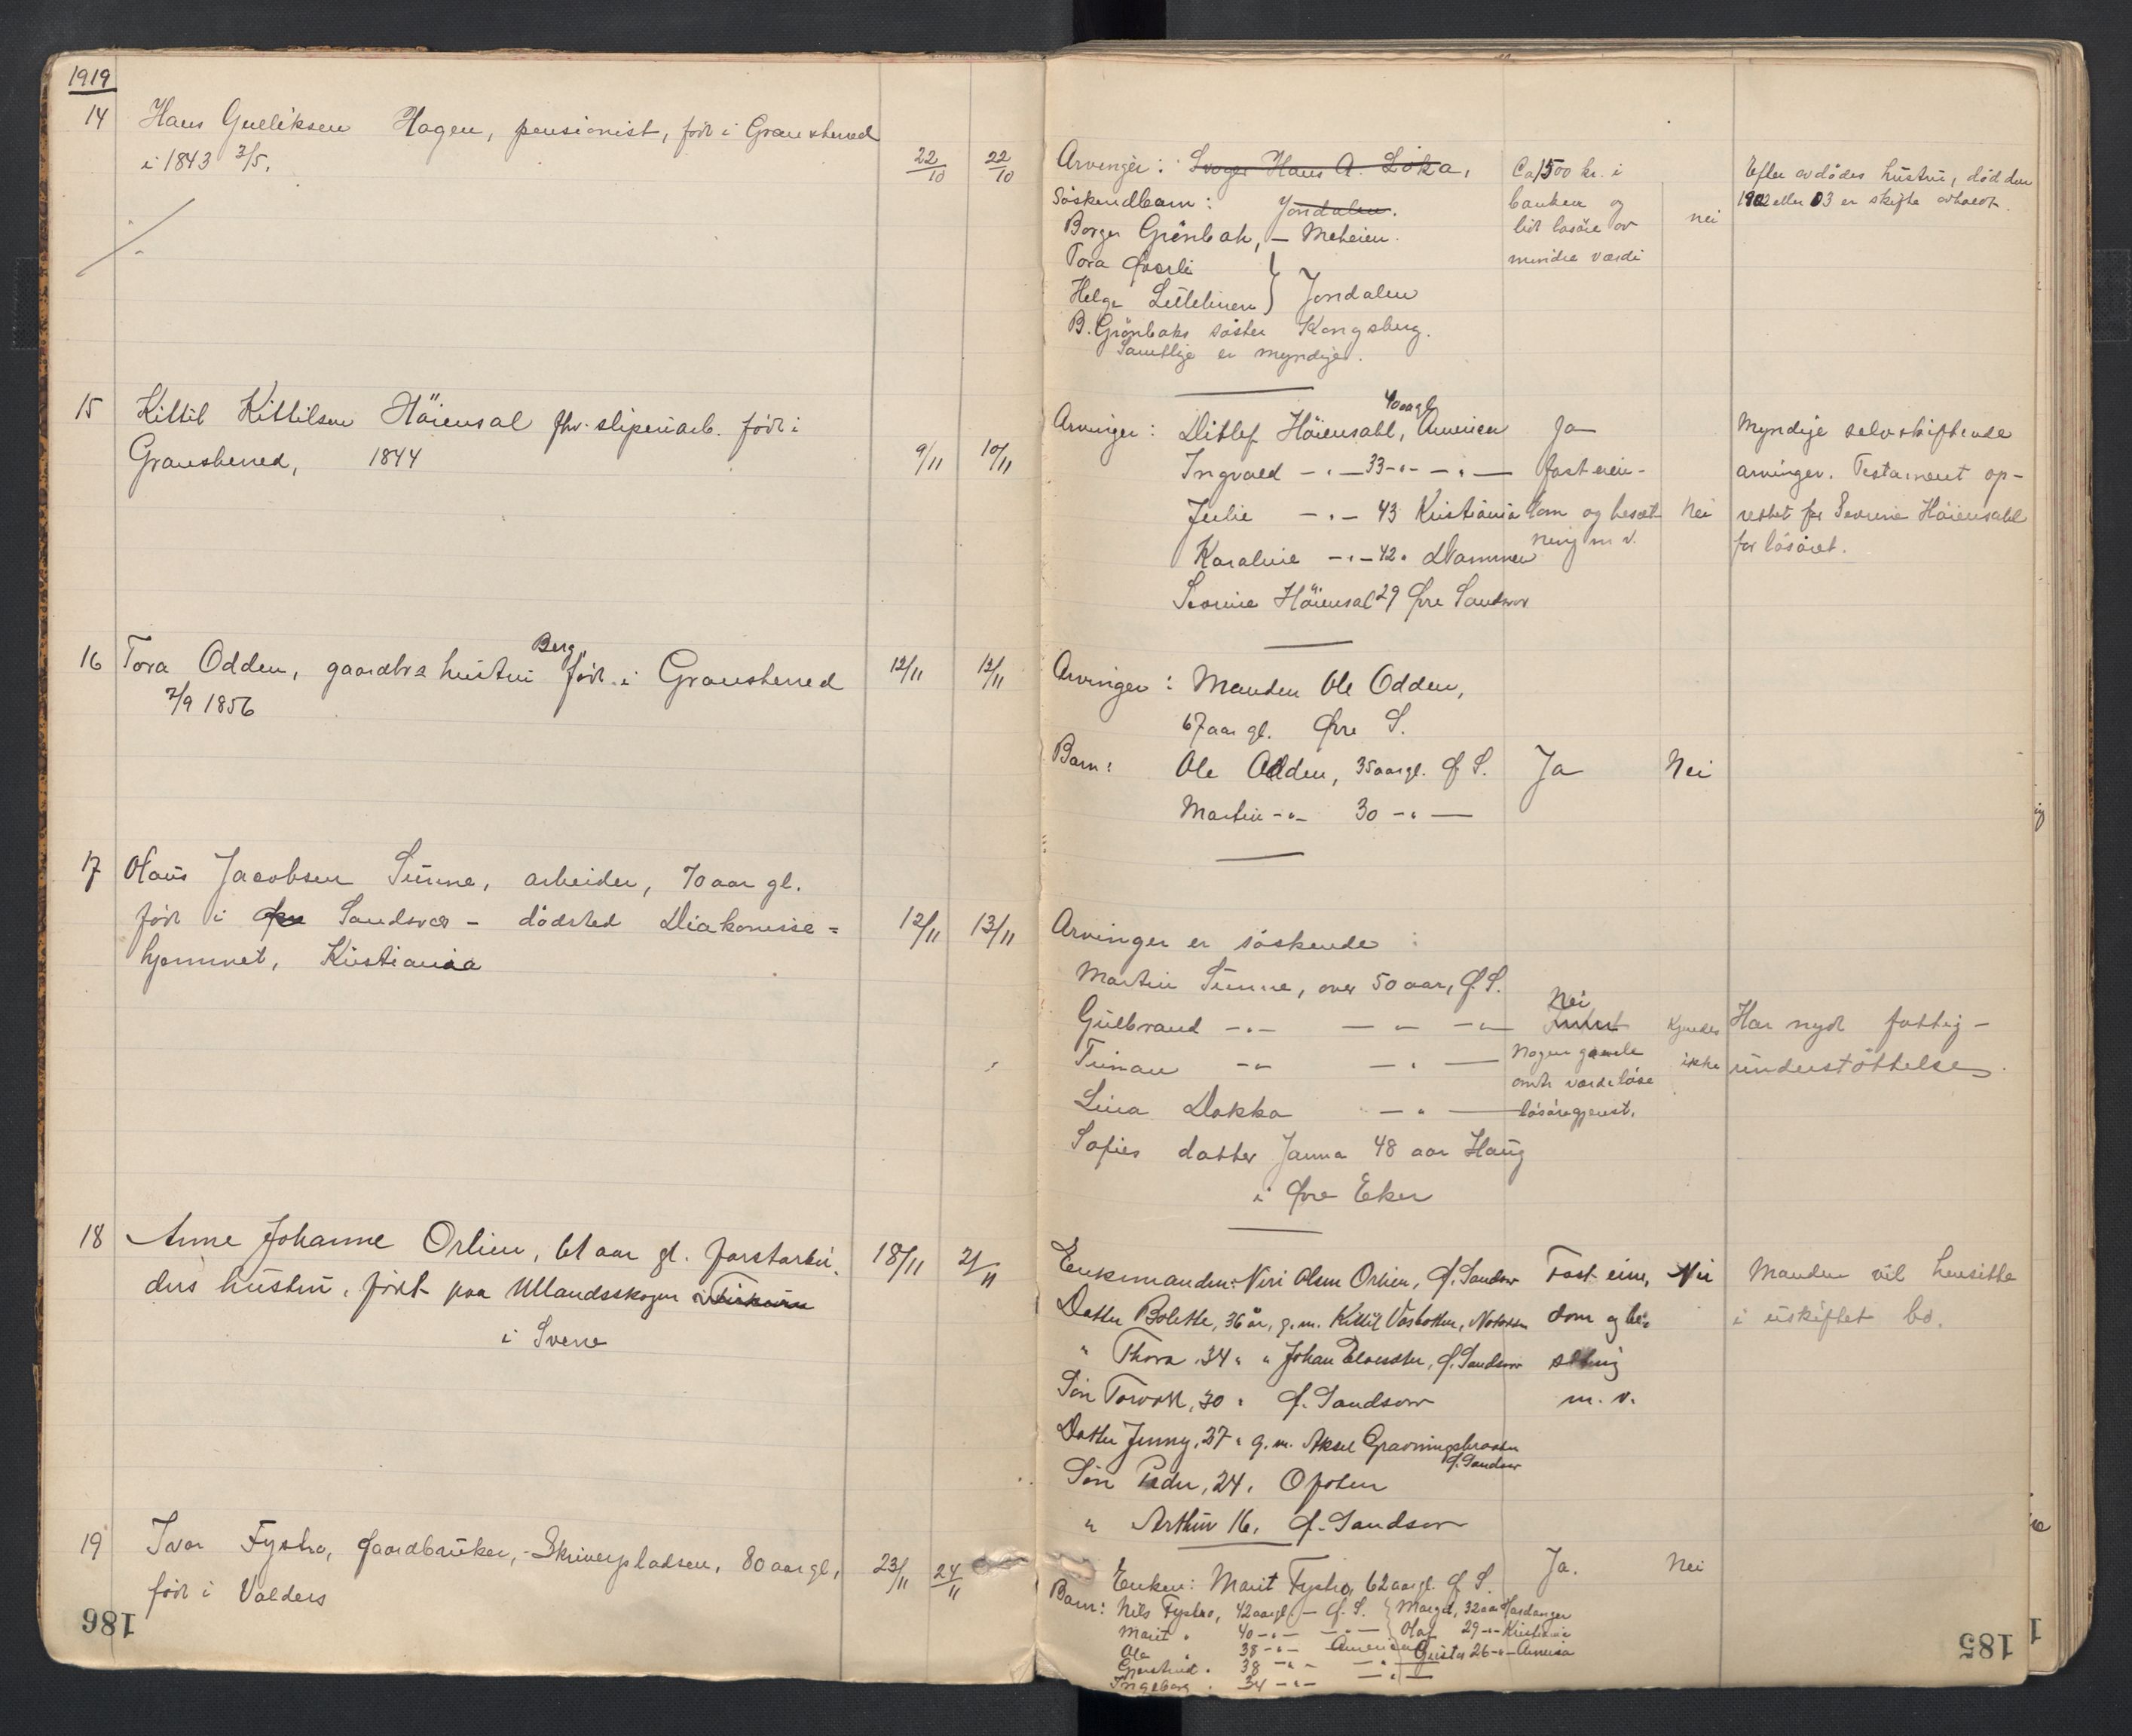 1919
14 Hans Gulliksen Hagen, pensionist, född i Gransherred
i 1843 3/5.
22/10 22/10
Arvinger: Svoger Hans A. Löka,
Jondalen.
Söskendbarn:
Borger Grönbak, — Meheien.
Tora
Helge } Jondalen
B. Grönbaks söster Kongsberg.
Samtlige er myndige.
Ca 1500 kr. i
banken og
lidt lösöre av
mindre værdi
nei
Efter avdödes hustru, död den
1902 eller 03 er skifte avholdt.
15 Kittil Kittilsen Höiensal fhv. sliperiarb. född i
Gransherred, 1844
9/11 10/11
Arvinger: Ditlef Höiensahl, 40 aar gl. Amerika
Ingvald -"- 33 -"- -"-
Julie -"- 43 Kristiania
Karaline -"- 42 " Drammen
Severine Höiensal 29 Øvre Sandsvær
Ja
fast eien-
dom og besæt-
ning m. v.
Nei
Myndige selvskiftende
arvinger. Testament op-
rettet for Severine Höiensahl
for lösöret.
16 Tora Odden, gaardbrs hustru Berg, född i Gransherred
7/9 1856
12/11 13/11
Arvinger: Manden Ole Odden,
67 aar gl. Øvre S.
Barn: Ole Odden, 35 aar gl. Ø. S.
Martin -"- 30 -"-
Ja
Nei
17 Olaus Jacobsen Sünne, arbeider, 70 aar gl.
född i Øvre Sandsvær - dödsted Diakonisse=
hjemmet, Kristiania
12/11 13/11
Arvinger er söskende:
Martin Sünne, over 50 aar, Ø. S.
Gulbrand -"- -"- -"-
-"- -"-
Lina Dokka -"-
Sofies datter Janna 48 aar Haug
i Øvre Eker
Nei
Intet
Nogen gamle
omtr værdilöse
lösöregjenst.
Kjendes
ikke
Har nydt fattig-
understöttelse.
18 Anne Johanne Orlien, 61 aar gl. forstarbei-
ders hustru, födt paa Ullandsskogen
i Svene
18/11 21/11
Enkemanden: Niri Olsen Orlien, Ø. Sandsvær
Datter Bolette, 36 år, g. m. Kittil Vasbotten, Notodden
" Thora, 34 " " Johan Ø. Sandsvær
Sön Torvald, 30 " Ø. Sandsvær
Datter Jenny, 27 " g. m. Aksel Gravningsbraaten
Ø. Sandsvær
Sön Peder, 24, Ofoten
" Arthur 16, Ø. Sandsvær
Fast eien-
dom og be-
sætning
m. v.
Nei
Manden vil hensitte
i uskiftet bo.
19 Ivar Fystro, gaardbruker, Skriverpladsen, 80 aar gl,
född i Valders
23/11 24/11
Enken: Marit Fystro, 62 aar gl. Ø. S.
Barn: Nils Fystro, 42 aar gl. — Ø. S. { Margit, 32 aar Hardanger
Marit " 40 -"- -"- { Olaf 29 -"- Kristiania
Ole " 38 -"- Amerika Gustav 26 -"- Amerika
Gjertrud " 38 -"- -"-
Ingeborg " 34 -"- -"-
Ja.
Nei
186
185